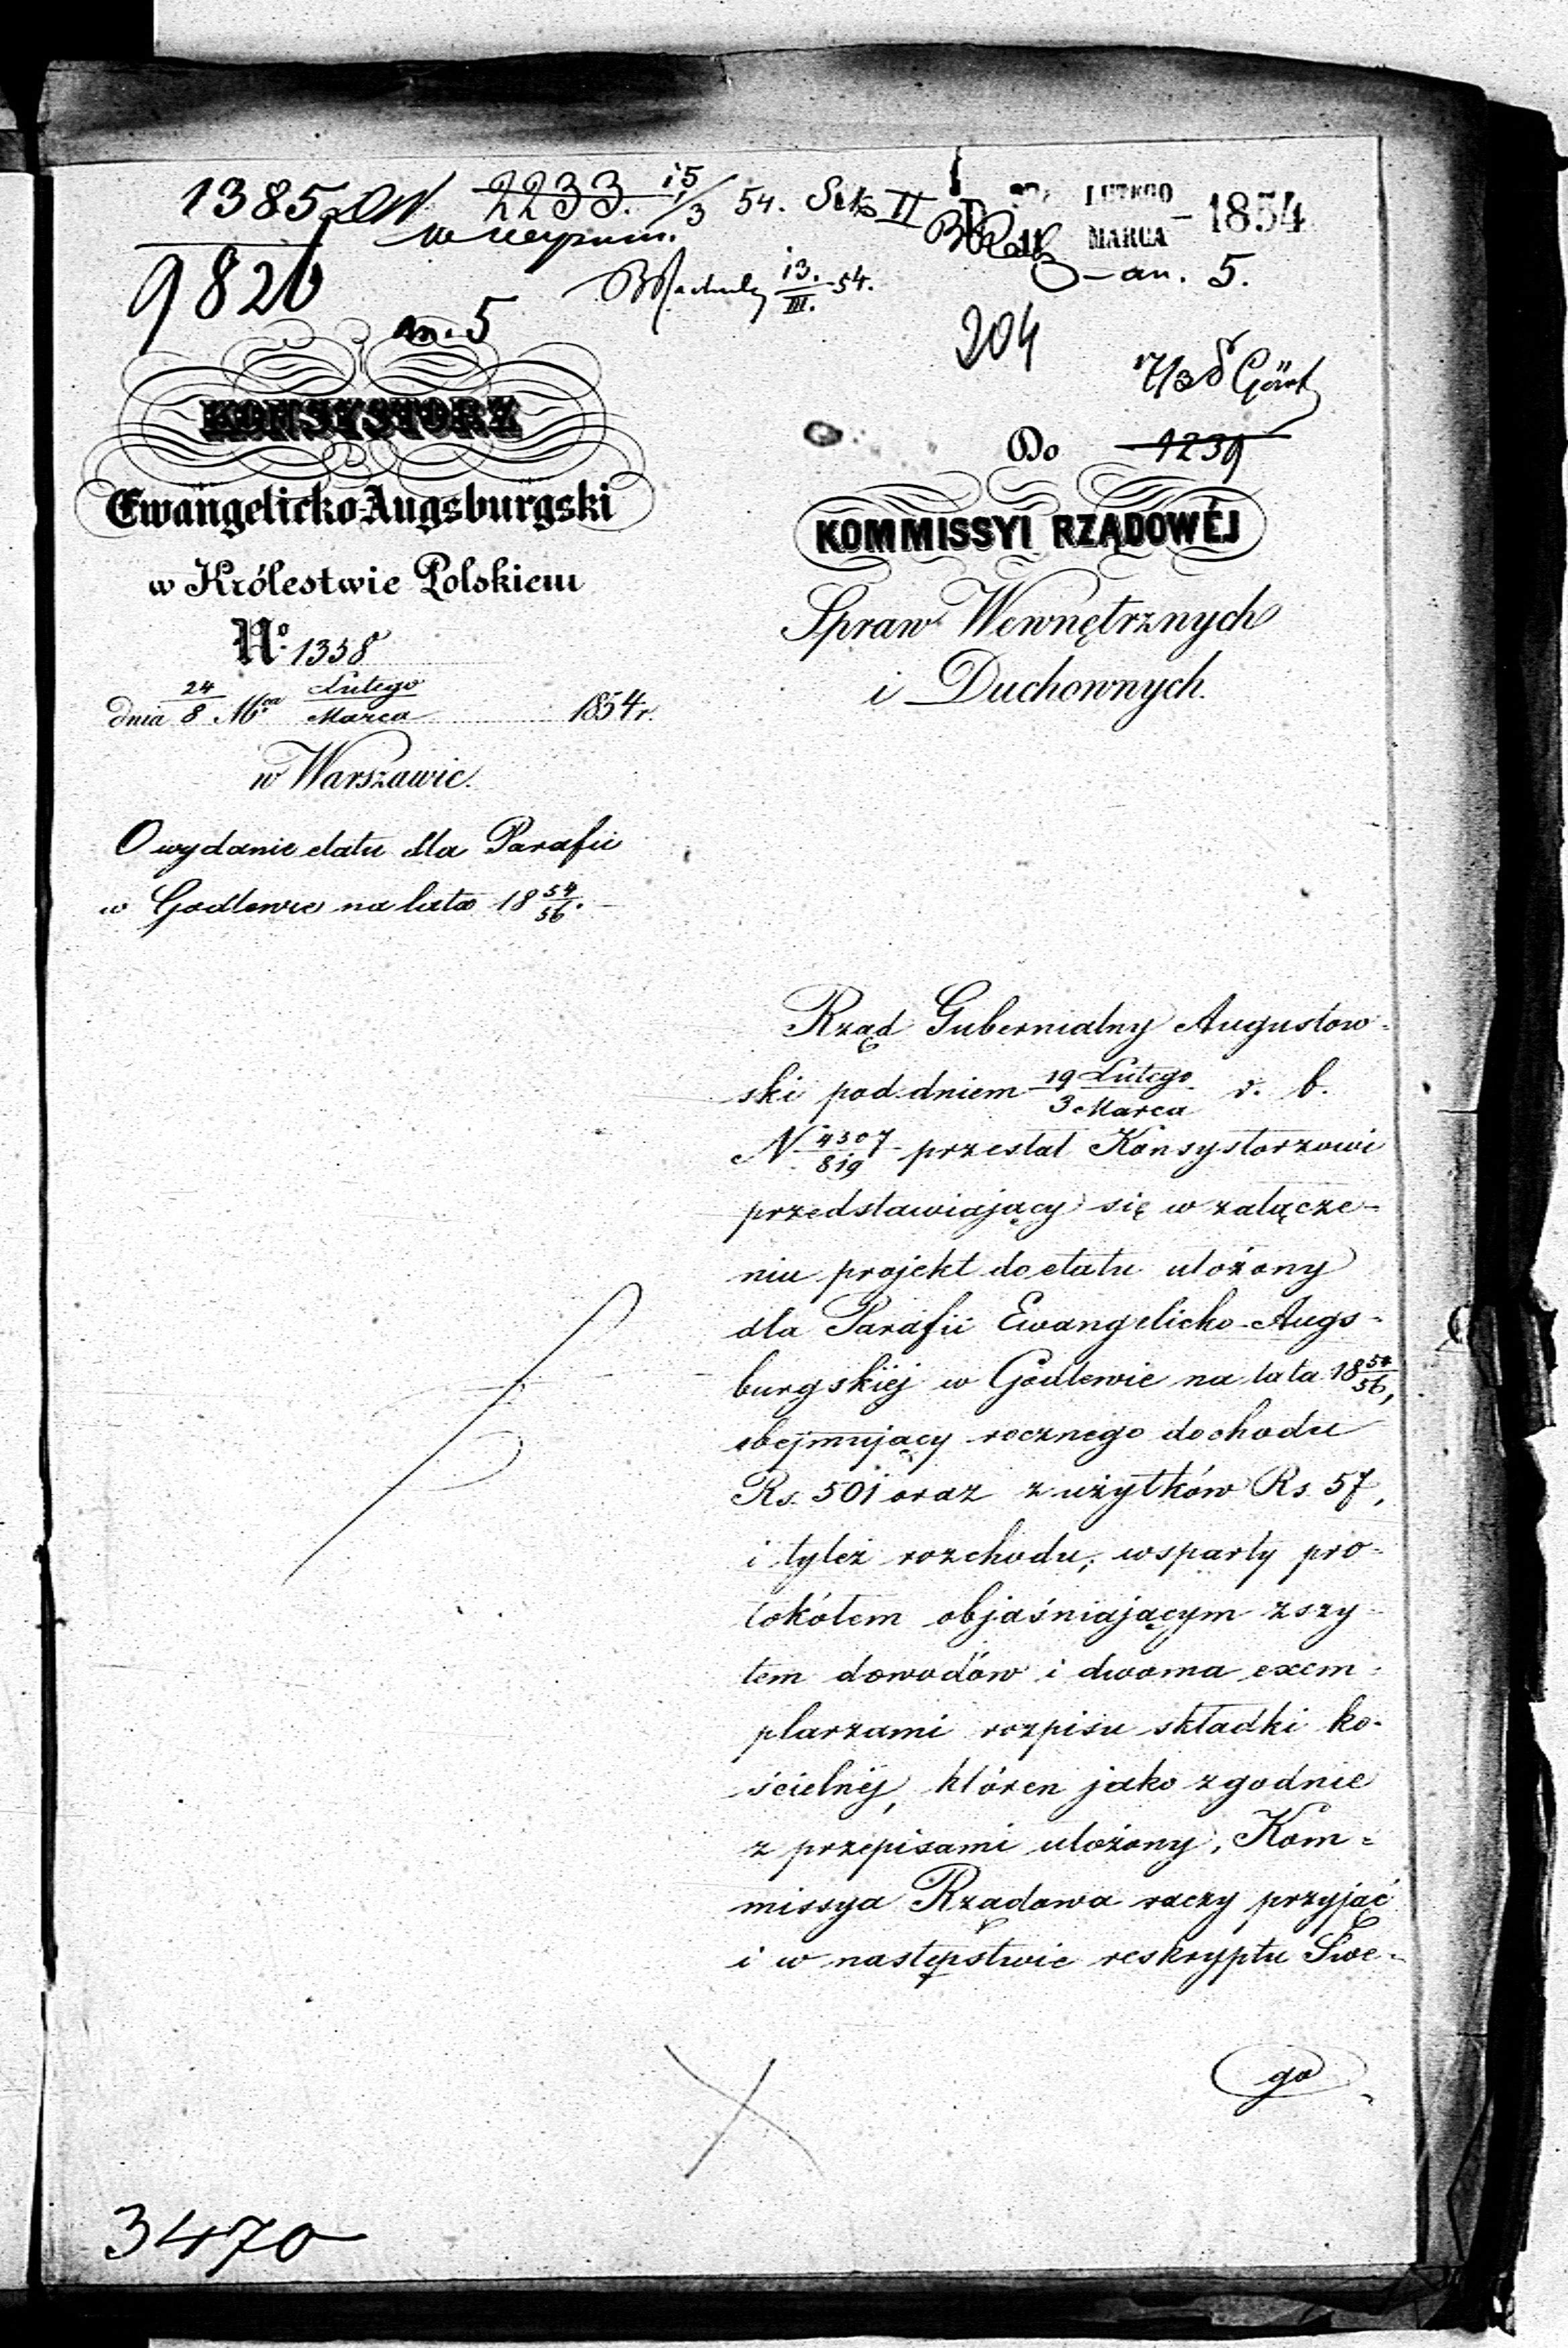 1385
2233. 15/3 54. Sek II
LUTEGO
MARCA
1854
9826
13./III. 54.
an. 5.
an. 5
204
17/3
KONSYSTORZ
Ewangelicko-Augsburgski
w Królestwie Polskiem
No. 1358
dnia 24/8 Mca Lutego/Marca 1854 r.
w Warszawie.
O wydanie etatu dla Parafii
w Godlewie na lata 18 54/56.
Do 1239
KOMMISSYI RZĄDOWÉJ
Spraw Wewnętrznych
i Duchownych.
Rząd Gubernialny Augustow-
ski pod dniem 19 Lutego/3 Marca r. b.
N 4307/819 przesłał Konsystorzowi
przedstawiający się w załącze-
niu projekt do etatu ułożony
dla Parafii Ewangelicko-Augs-
burgskiéj w Godlewie na lata 18 54/56,
obejmujący rocznego dochodu
Rs. 501 oraz z użytków Rs 57,
i tyleż rozchodu, wsparty pro-
tokółem objaśniającym zszy-
tem dowodów i dwoma exem-
plarzami rozpisu składki ko-
ścielnéj, któren jako zgodnie
z przepisami ułożony, Kom-
missya Rządowa raczy przyjąć
i w następstwie reskryptu Swe-
go
3470